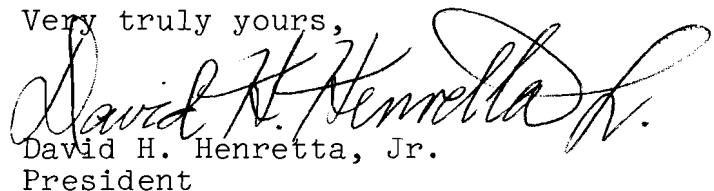 Very truly yours,
David H. Henretta Jr.
David H. Henretta, Jr.
President